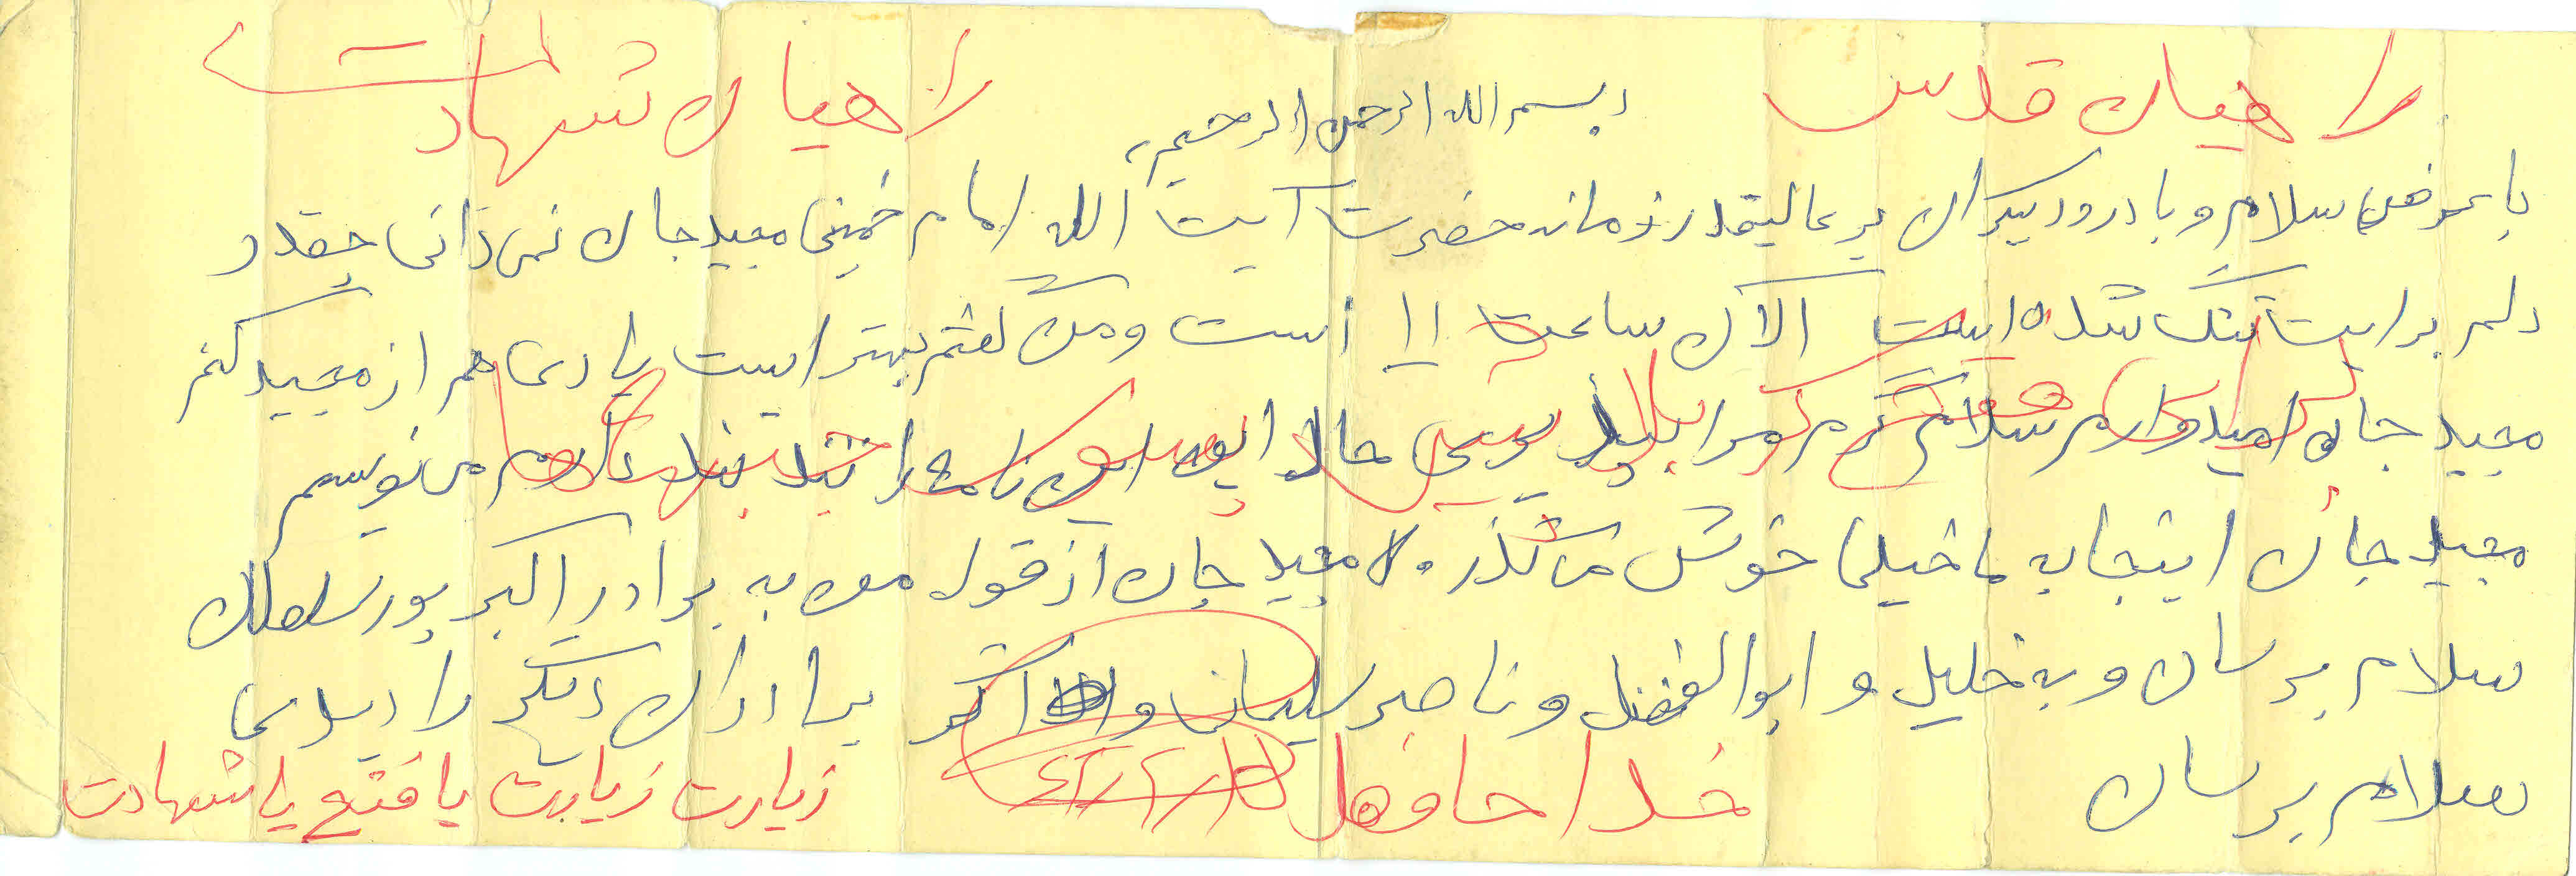 راهیان قدس
راهیان شهادت
بسم الله الرحمن الرحیم
با عرض سلام و با درود بیکران بر عالیقدر زمانه حضرت آیت الله امام خمینی مجید جان نمی دانی چقدر
دلم برایت تنگ شده است الان ساعت ۱۱ است و من گفتم بهتر است یادی هم از مجید کنم
مجید جان امیدوارم سلام گرم مرا حال این نامه را می نویسم
مجید جان اینجا به ما خیلی خوش می گذر مجید جان از قول من به برادر اکبر پور
سلام برسان و به خلیل و ابوالفضل و ناصر سلیمانی و اگر برادران دیگر را دیدی
سلام برسان
خدا حافظ
زیارت زیارت یا فتح یا شهادت